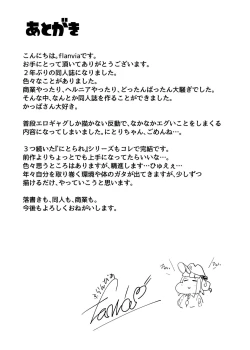 あとがき
こんにちは。flanviaです。
お手にとって頂いてありがとうございます。
2年ぶりの同人誌になりました。
色々なことがありました。
商業やったり、ヘルニアやったり、どったんばったん大騒ぎでした。
そんな中、なんとか同人誌を作ることができました。
かっぱさん大好き。
普段エロギャグしか描かない反動で、なかなかエグいことをしまくる
内容になってしまいました。にとりちゃん、ごめんね…。
3つ続いた『にとられ』シリーズもコレで完結です。
前作よりちょっとでも上手になってたらいいな…。
色々思うところはありますが、精進します…ひゅえぇ…
年々自分を取り巻く環境や体のガタが出てきますが、少しずつ
描けるだけ、やっていこうと思います。
落書きも、同人も、商業も。
今後もよろしくおねがいします。